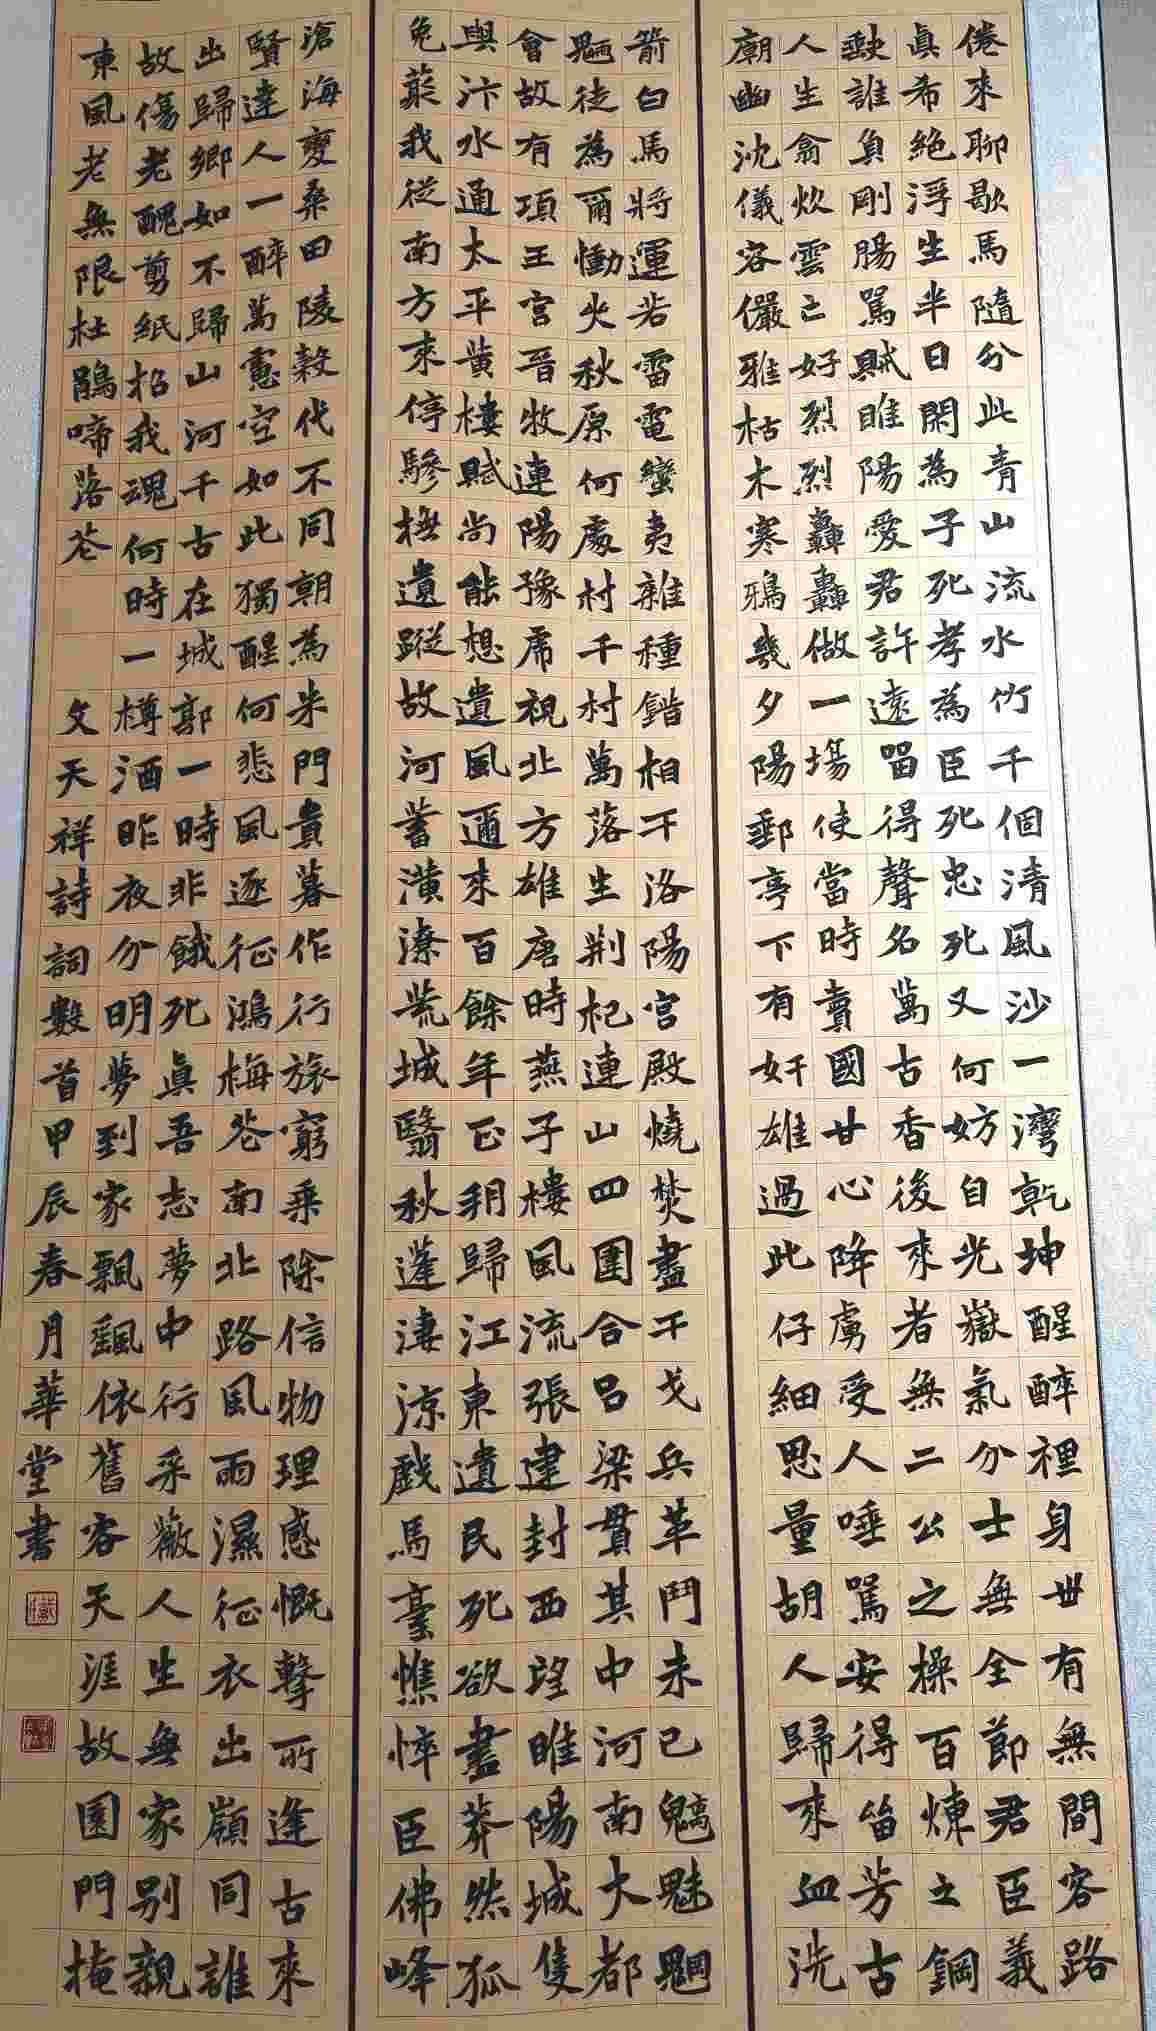 倦來聊歇馬隨分此青山流水竹千個清風沙一灣乾坤醒醉裡身世有無間容路
真希絕浮生半日閑為子死孝為臣死忠死又何妨自光嶽氣分士無全節君臣義
缺誰負剛腸罵賊睢陽愛君許遠留得聲名萬古香後來者無二公之操百煉之鋼
人生翕炊雲亡好烈烈轟轟做一場使當時賣國甘心降虜受人唾罵安得留芳古
廟幽沈儀容儼雅枯木寒鴉幾夕陽郵亭下有奸雄過此仔細思量胡人歸來血洗
箭白馬將運若雷電蠻夷雜種錯相干洛陽宮殿燒焚盡干戈兵革鬥未已魑魅魍
魎徒為爾慟哭秋原何處村千村萬落生荊杞連山四圍合呂梁貫其中河南大都
會故有項王宮晉牧連陽豫虎視北方雄唐時燕子樓風流張建封西望睢陽城隻
與汴水通太平黃樓賦尚能想遺風邇來百餘年正朔歸江東遺民死欲盡莽然狐
兔叢我從南方來停驂撫遺蹤故河蓄潢潦荒城翳秋蓬淒涼戲馬臺憔悴臣佛峰
滄海變桑田陵穀代不同朝為朱門貴暮作行旅窮乘除信物理感慨擊所逢古來
賢達人一醉萬慮空如此獨醒何悲風逐征鴻梅花南北路風雨濕征衣出嶺同誰
出歸鄉如不歸山河千古在城郭一時非餓死真吾志夢中行采薇人生無家別親
故傷老醜剪紙招我魂何時一樽酒昨夜分明夢到家飄飄依舊容天涯故園門掩
東風老無限杜鵑啼落花 文天祥詩詞數首甲辰春月華堂書